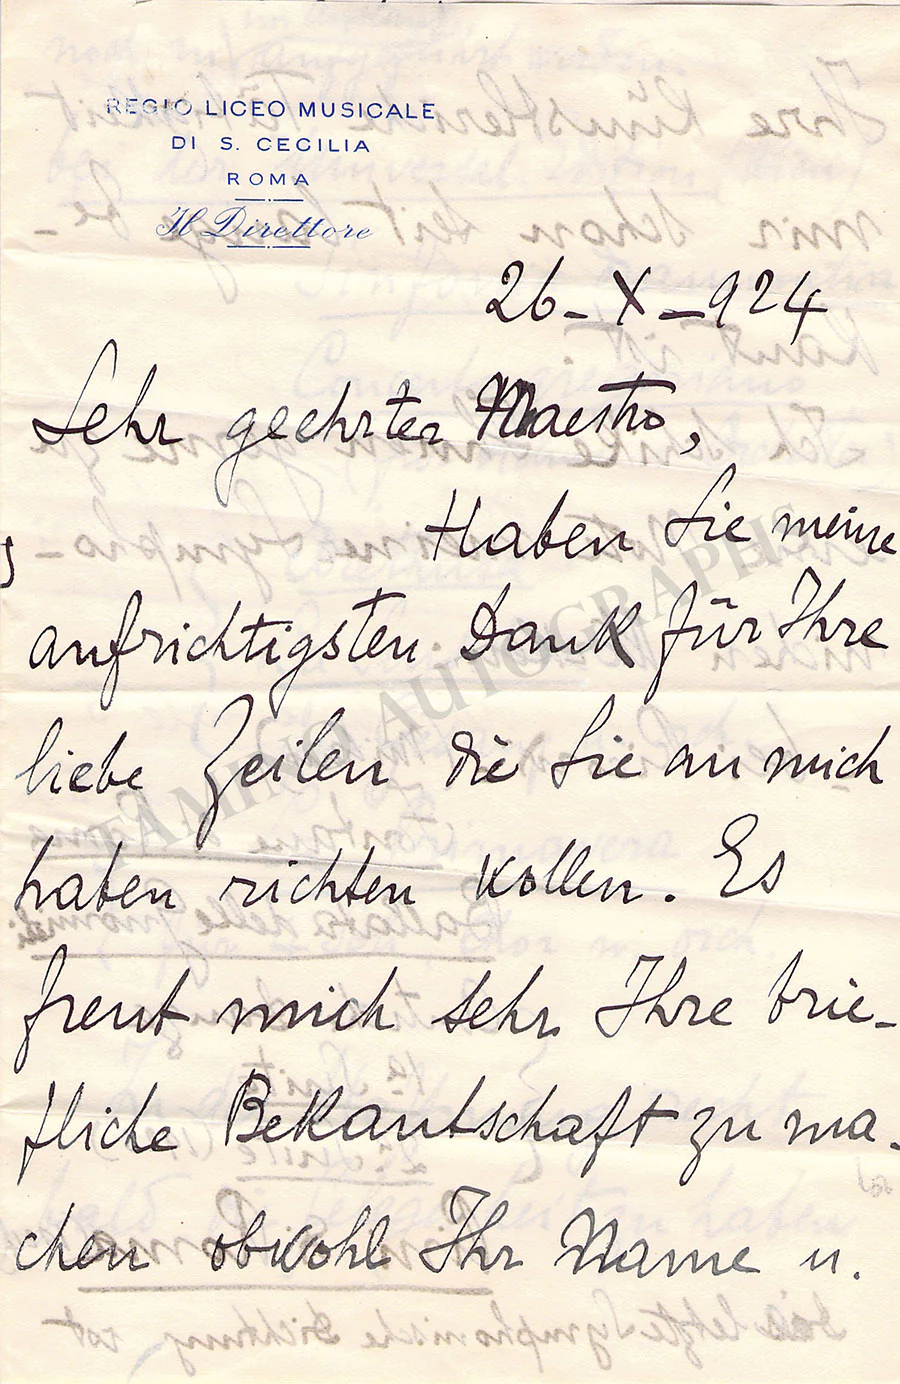 REGIO LICEO MUSICALE
DI S. CECILIA
ROMA
Il Direttore
26 - X - 924
Sehr geehrter Maestro,
Haben Sie meine
aufrichtigsten Dank für Ihre
liebe Zeilen die Sie an mich
haben richten wollen. Es
freut mich sehr Ihre brie-
fliche Bekantschaft zu ma-
chen obwohl Ihr Name u.
TAMINO AUTOGRAPHS